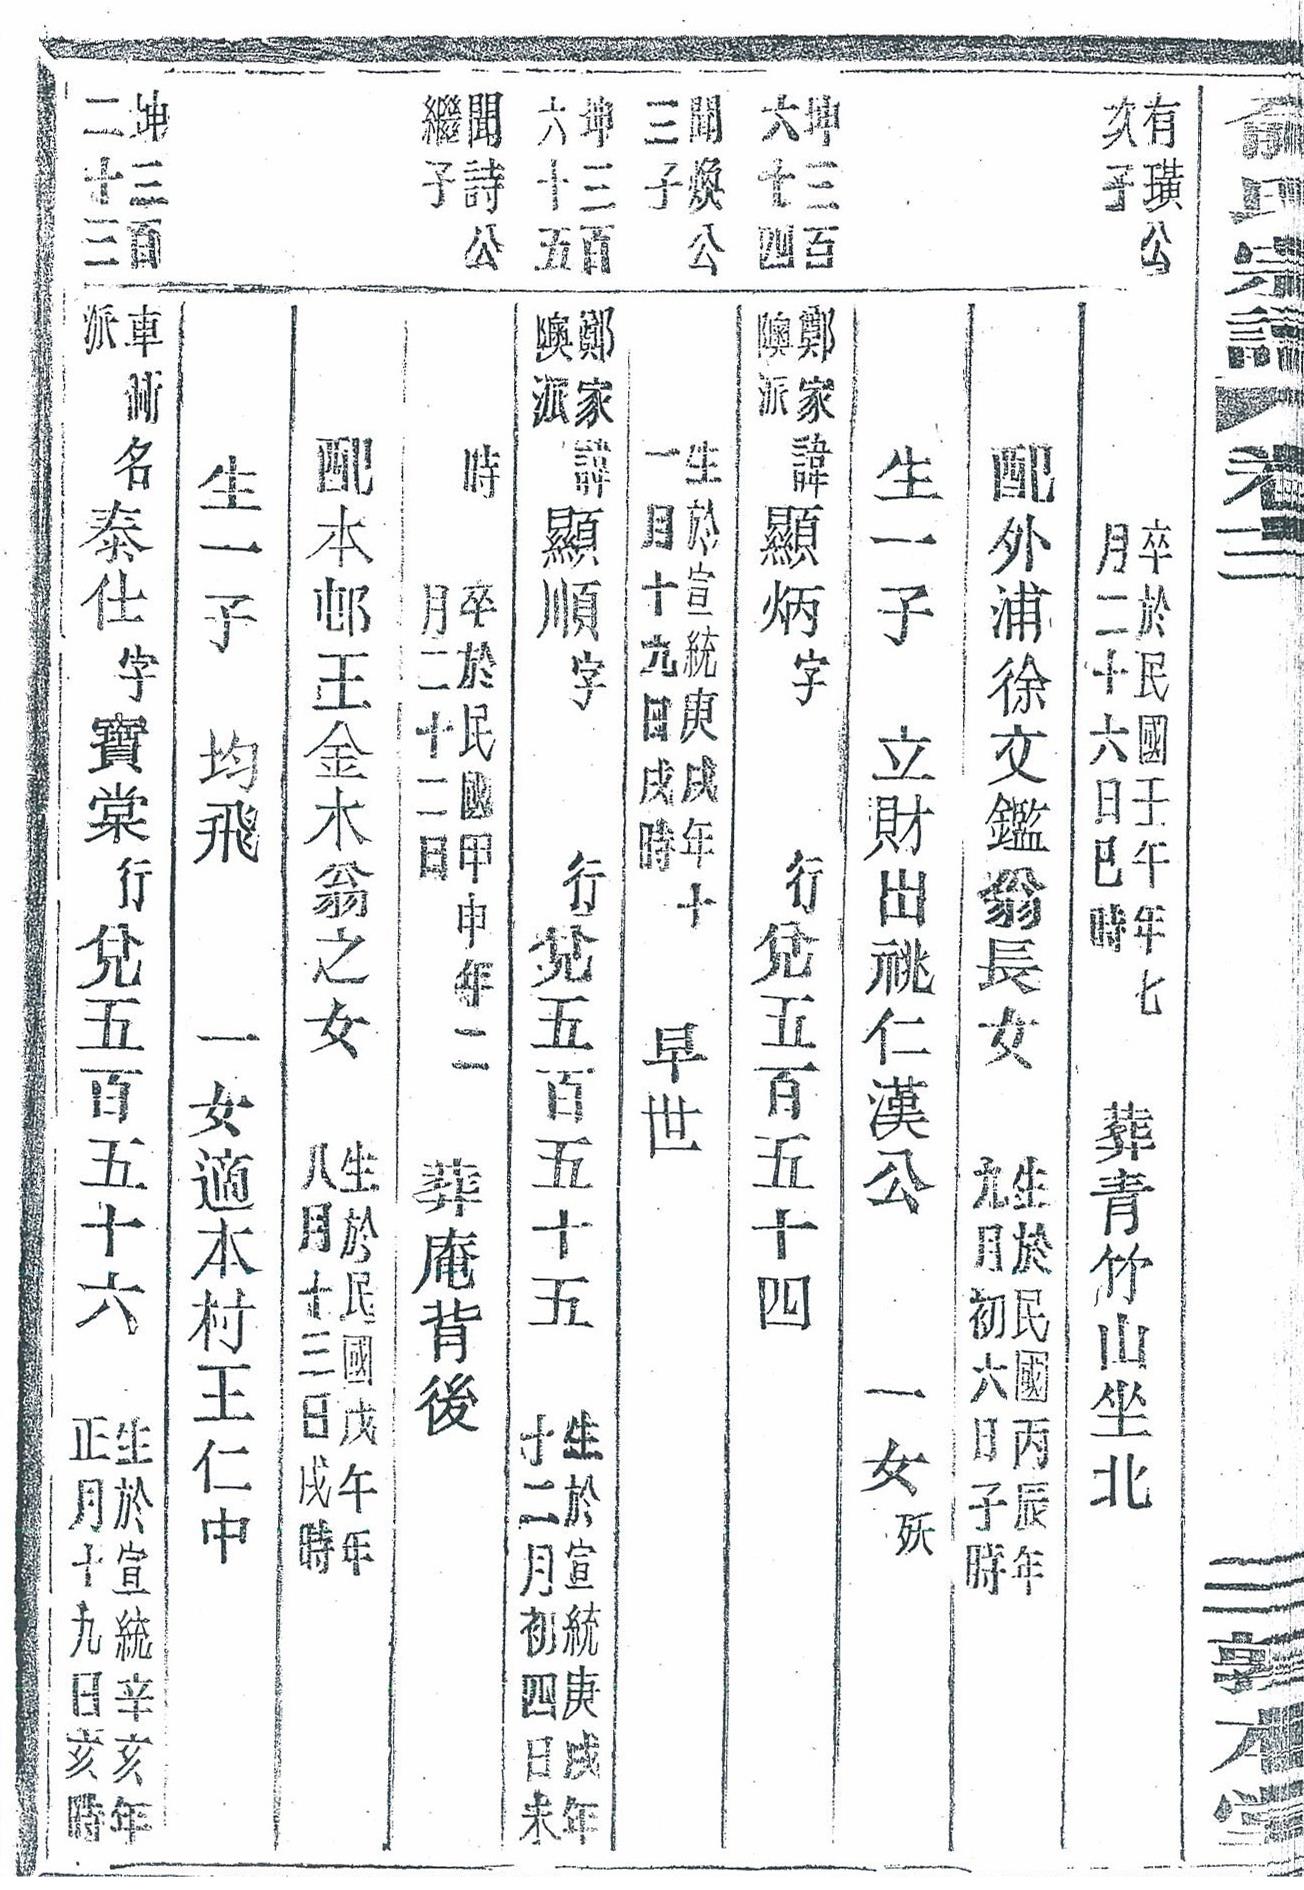 俞氏宗譜 卷三 三 敦本堂
有璜公次子
卒於民國壬午年七月二十六日巳時 葬青竹山坐北
配外浦徐文鑑翁長女 生於民國丙辰年九月初六日子時
生一子 立財出祧仁漢公 一女殀
坤三百六十四 鄭家隩派 諱顯炳字 行兌五百五十四
聞煥公三子 生於宣統庚戌年十一月十九日戌時 早世
坤三百六十五 鄭家隩派 諱顯順字 行兌五百五十五 生於宣統庚戌年十二月初四日未
聞詩公繼子 時 卒於民國甲申年二月二十二日 葬庵背後
配本邨王金木翁之女 生於民國戊午年八月十三日戌時
生一子 均飛 一女適本村王仁中
坤三百二十三 車衕派 名泰仕字寶棠行兌五百五十六 生於宣統辛亥年正月十九日亥時